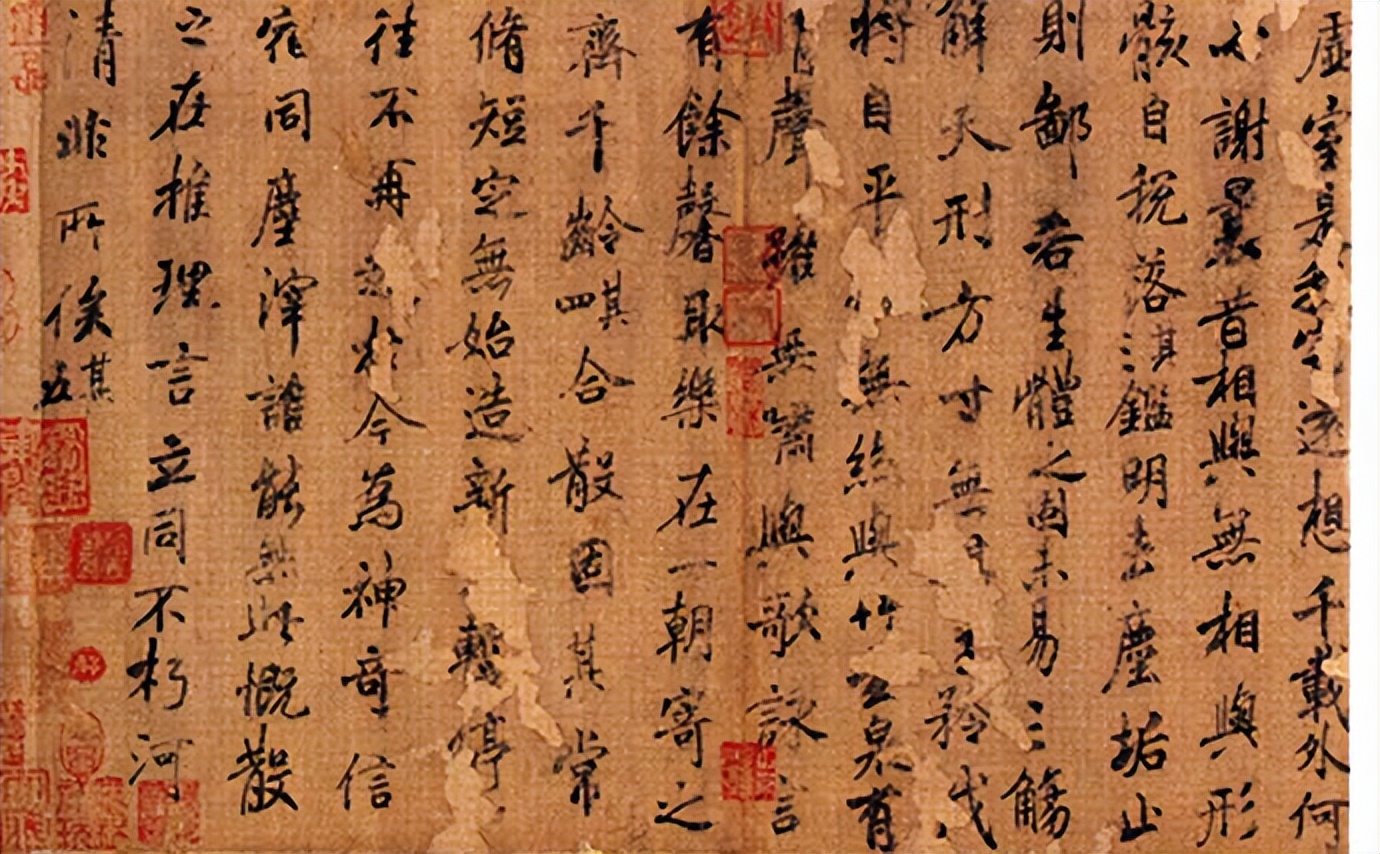 虛室是我宅遠想千載外何
必謝曩昔相與無相與形
骸自脫落其三鑑明去塵垢止
則鄙吝生體之固未易三觴
解天刑方寸無主矜伐
將自平無絲與竹玄泉有
聲雖無嘯與歌詠言
有餘馨取樂在一朝寄之
齊千齡其四合散固其常
脩短定無始造新暫停
往不再起於今為神奇信
宛同塵滓誰能無此慨散
之在推理言立同不朽河
清非所俟其五